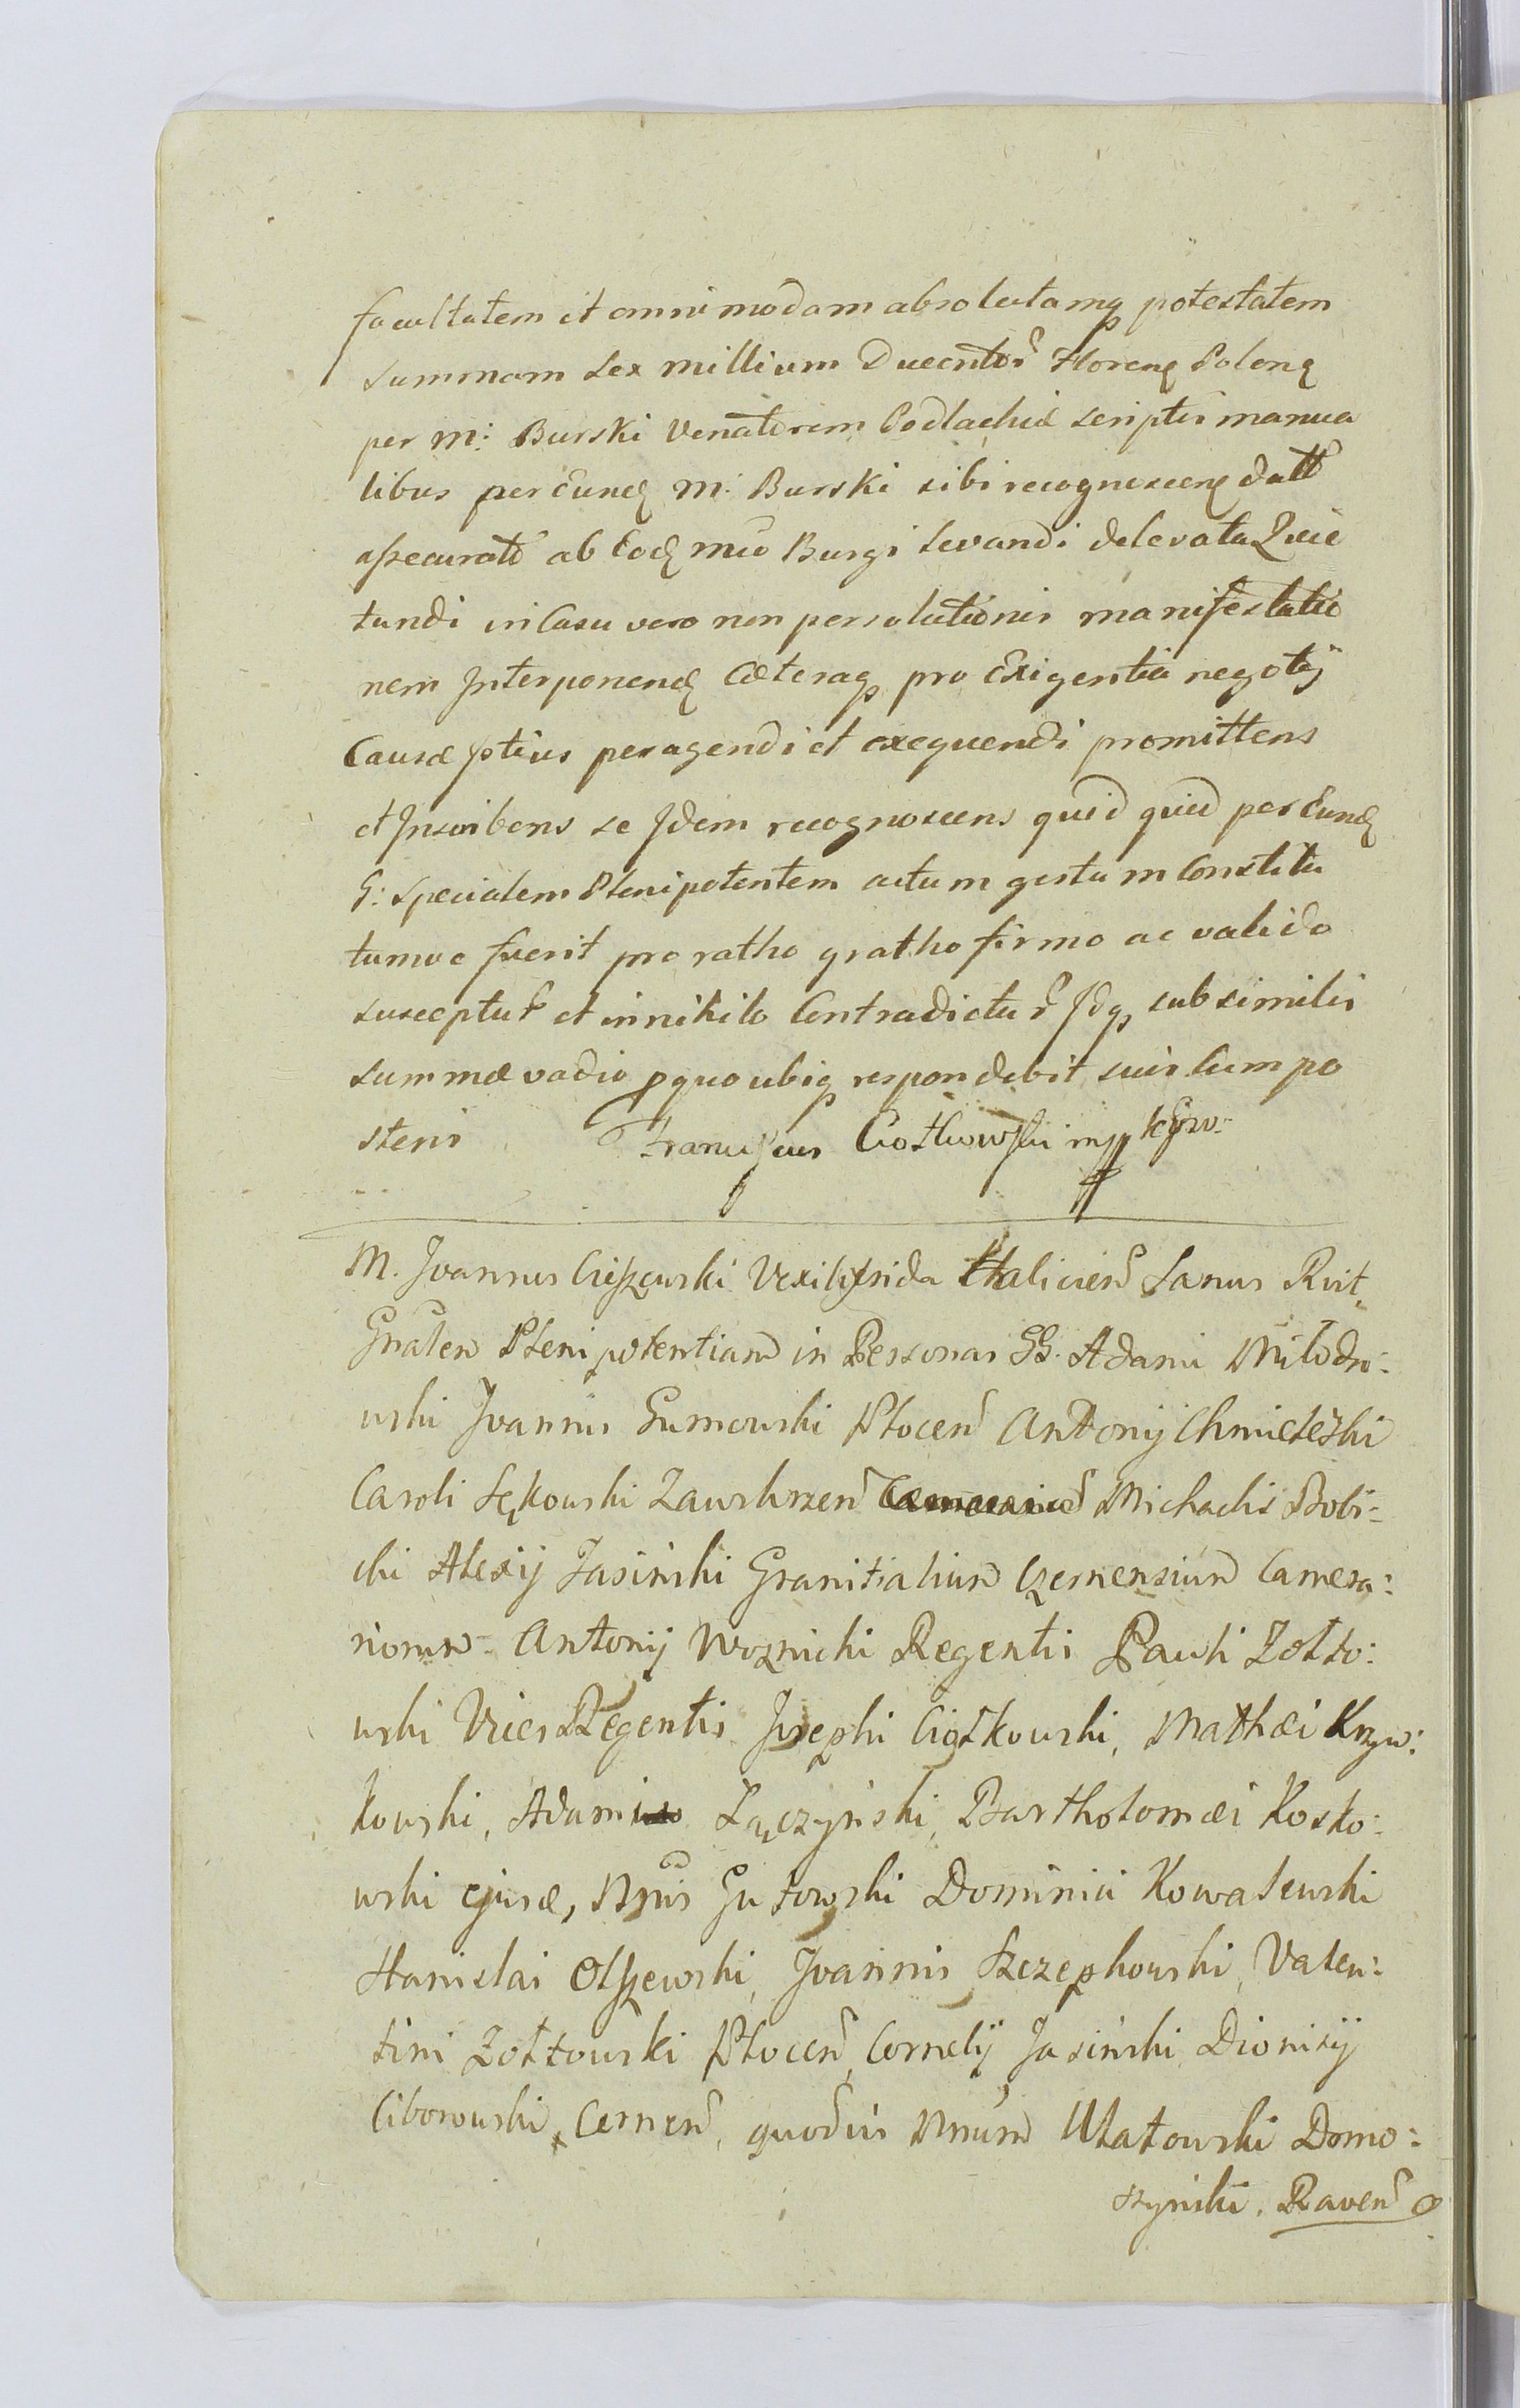 facultatem et omnimodam absolutamq potestatem
summam sex millium Ducentor Florenq Polonq
per M: Burski Venatorem Podlachiæ scriptis manua
libus per Eundq M: Burski sibi recognoscenq datt
assecurat ab Eodq mco Burgi levandi de levata Quie
tandi in Casu vero non persolutionis manifestatio
nem Interponendq Cæteraq pro Exigentia negotij
Causæ ptius peragendi et exequendi promittens
et Inscribens se Idem recognoscens quid quid per Eundq
G: specialem Plenipotentem actum gestum Constitu
tumve fuerit pro ratho gratho firmo ac valido
suscептur et in nihilo Contradictur Idq sub similis
summæ vadio pquo ubiq respondebit suis cum po
steris Franciscus Ciotkowski mp
M. Joannes Cieszewski Vexilifsida Halicien Sanus
Gnalem Plenipotentiam in Personas GG. Adami Milodro:
wski Joannis Gumowski Plocen Antonij Chmieleski
Caroli Sękowski Zawskrzen Michaelis Bobi=
cki Alexij Jasinski Granitialium Czernensium Camera:
riorum Antonij Woznicki Regentis Pauli Zolto:
wski Vices Regentis Josephi Ciołkowski, Mathæi Krzyw:
kowski, Adami Łączyński, Bartholomæi Kosko:
wski ejusd, Gutowski Dominici Kowalewski
Stanislai Olszewski, Joannis Szczepkowski, Valen:
tini Zołtowski Plocen, Cornelij Jasinski, Dionisij
Ciborowski, Cernen, quodvis Ulatowski Domo:
szynski. Raven